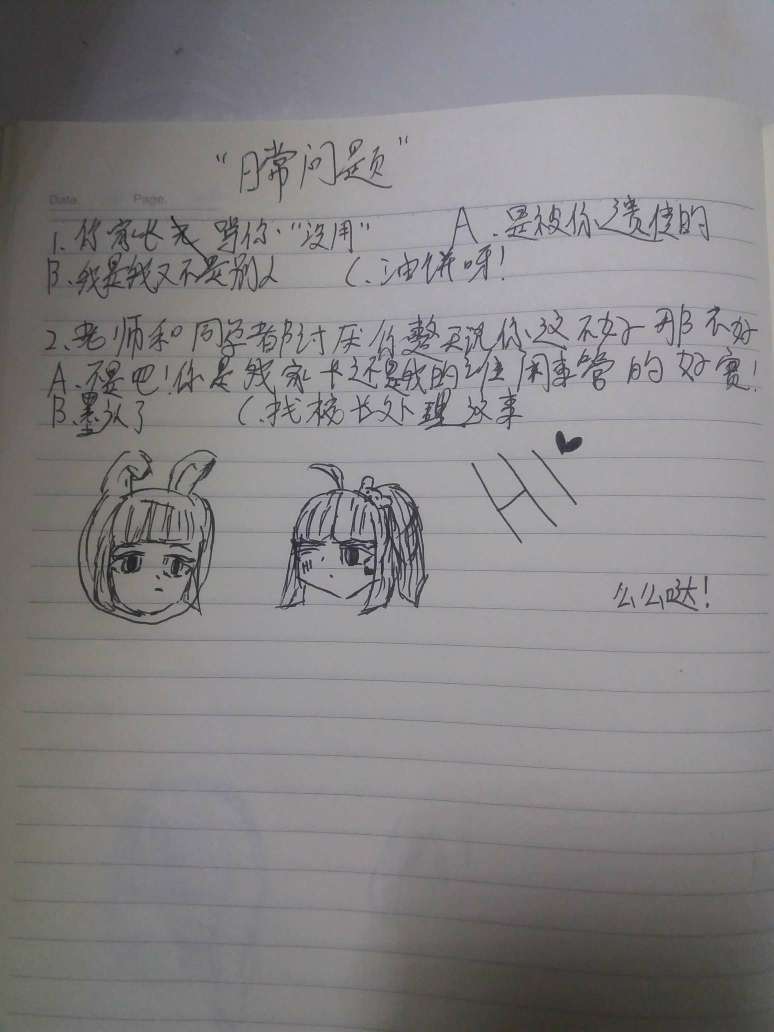 "日常问题"
Data. Page.
1. 你家长 骂你:"没用" A.是被你遗传的
B.我是我又不是别人 C.油饼呀!
2.老师和同学都讨厌你整天说你这不好那不好
A.不是吧!你是我家长还是我的 闲事管的好宽!
B.墨认了 C.找校长处理这事
HI
么么哒!